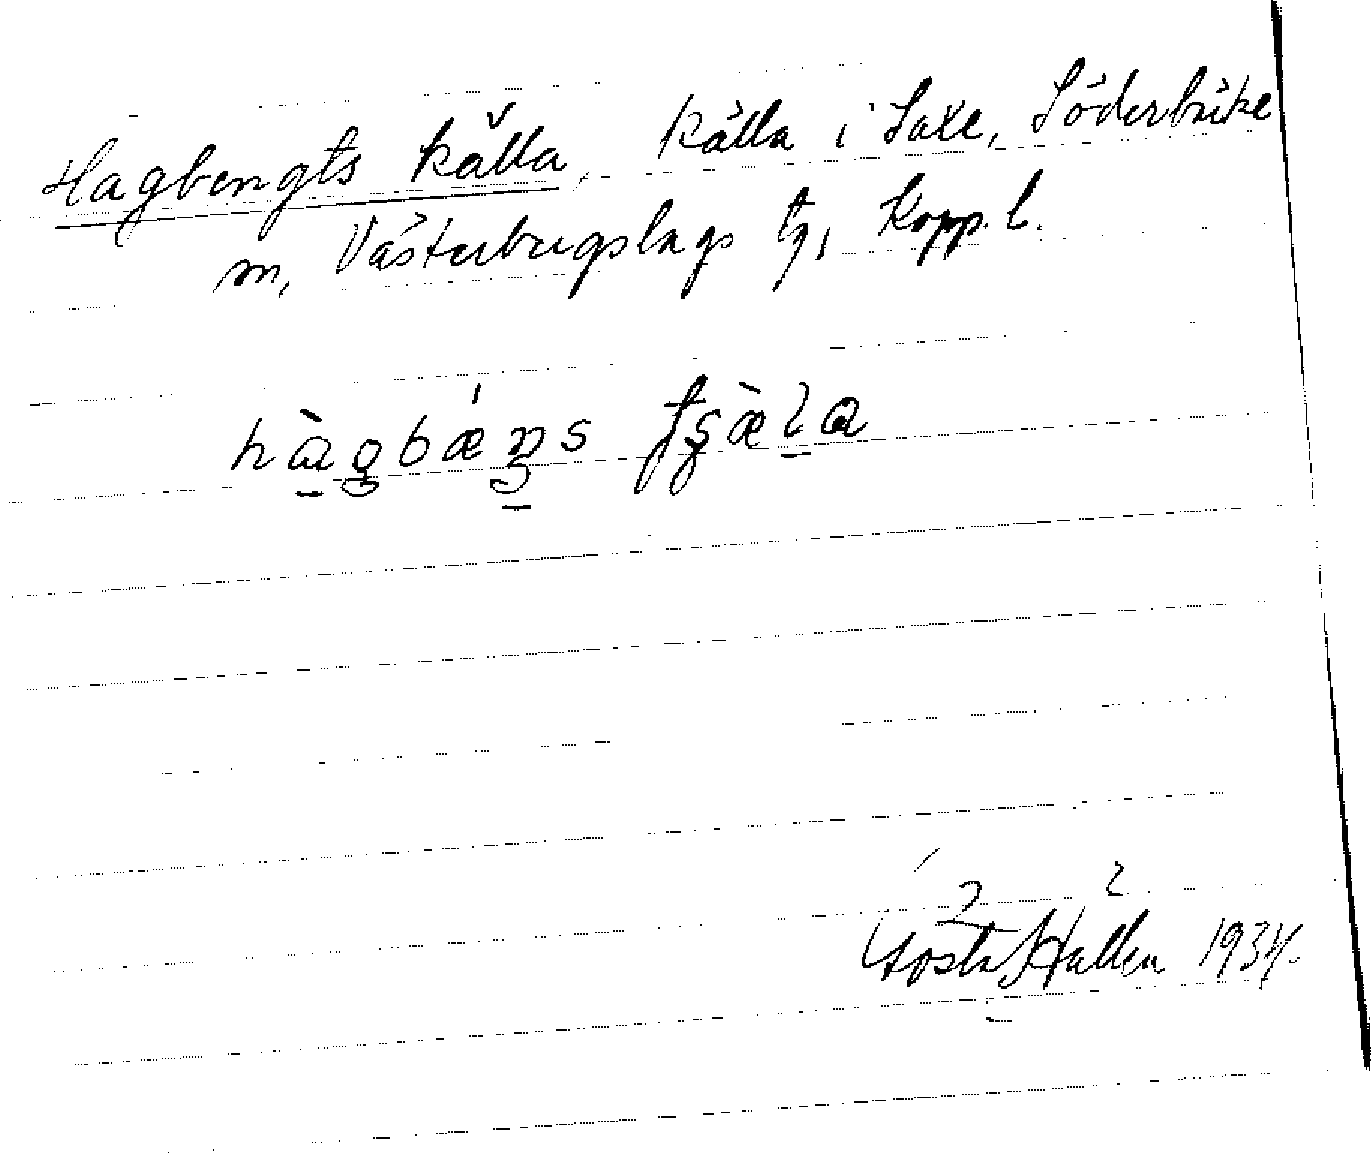 Hagbengts källa, källa i Saxe, Söderbärke
m, Västerbergslags tg, Kopp. l.
hàgbǽŋs tʂæ̀la
Gösta Hallén 1934.